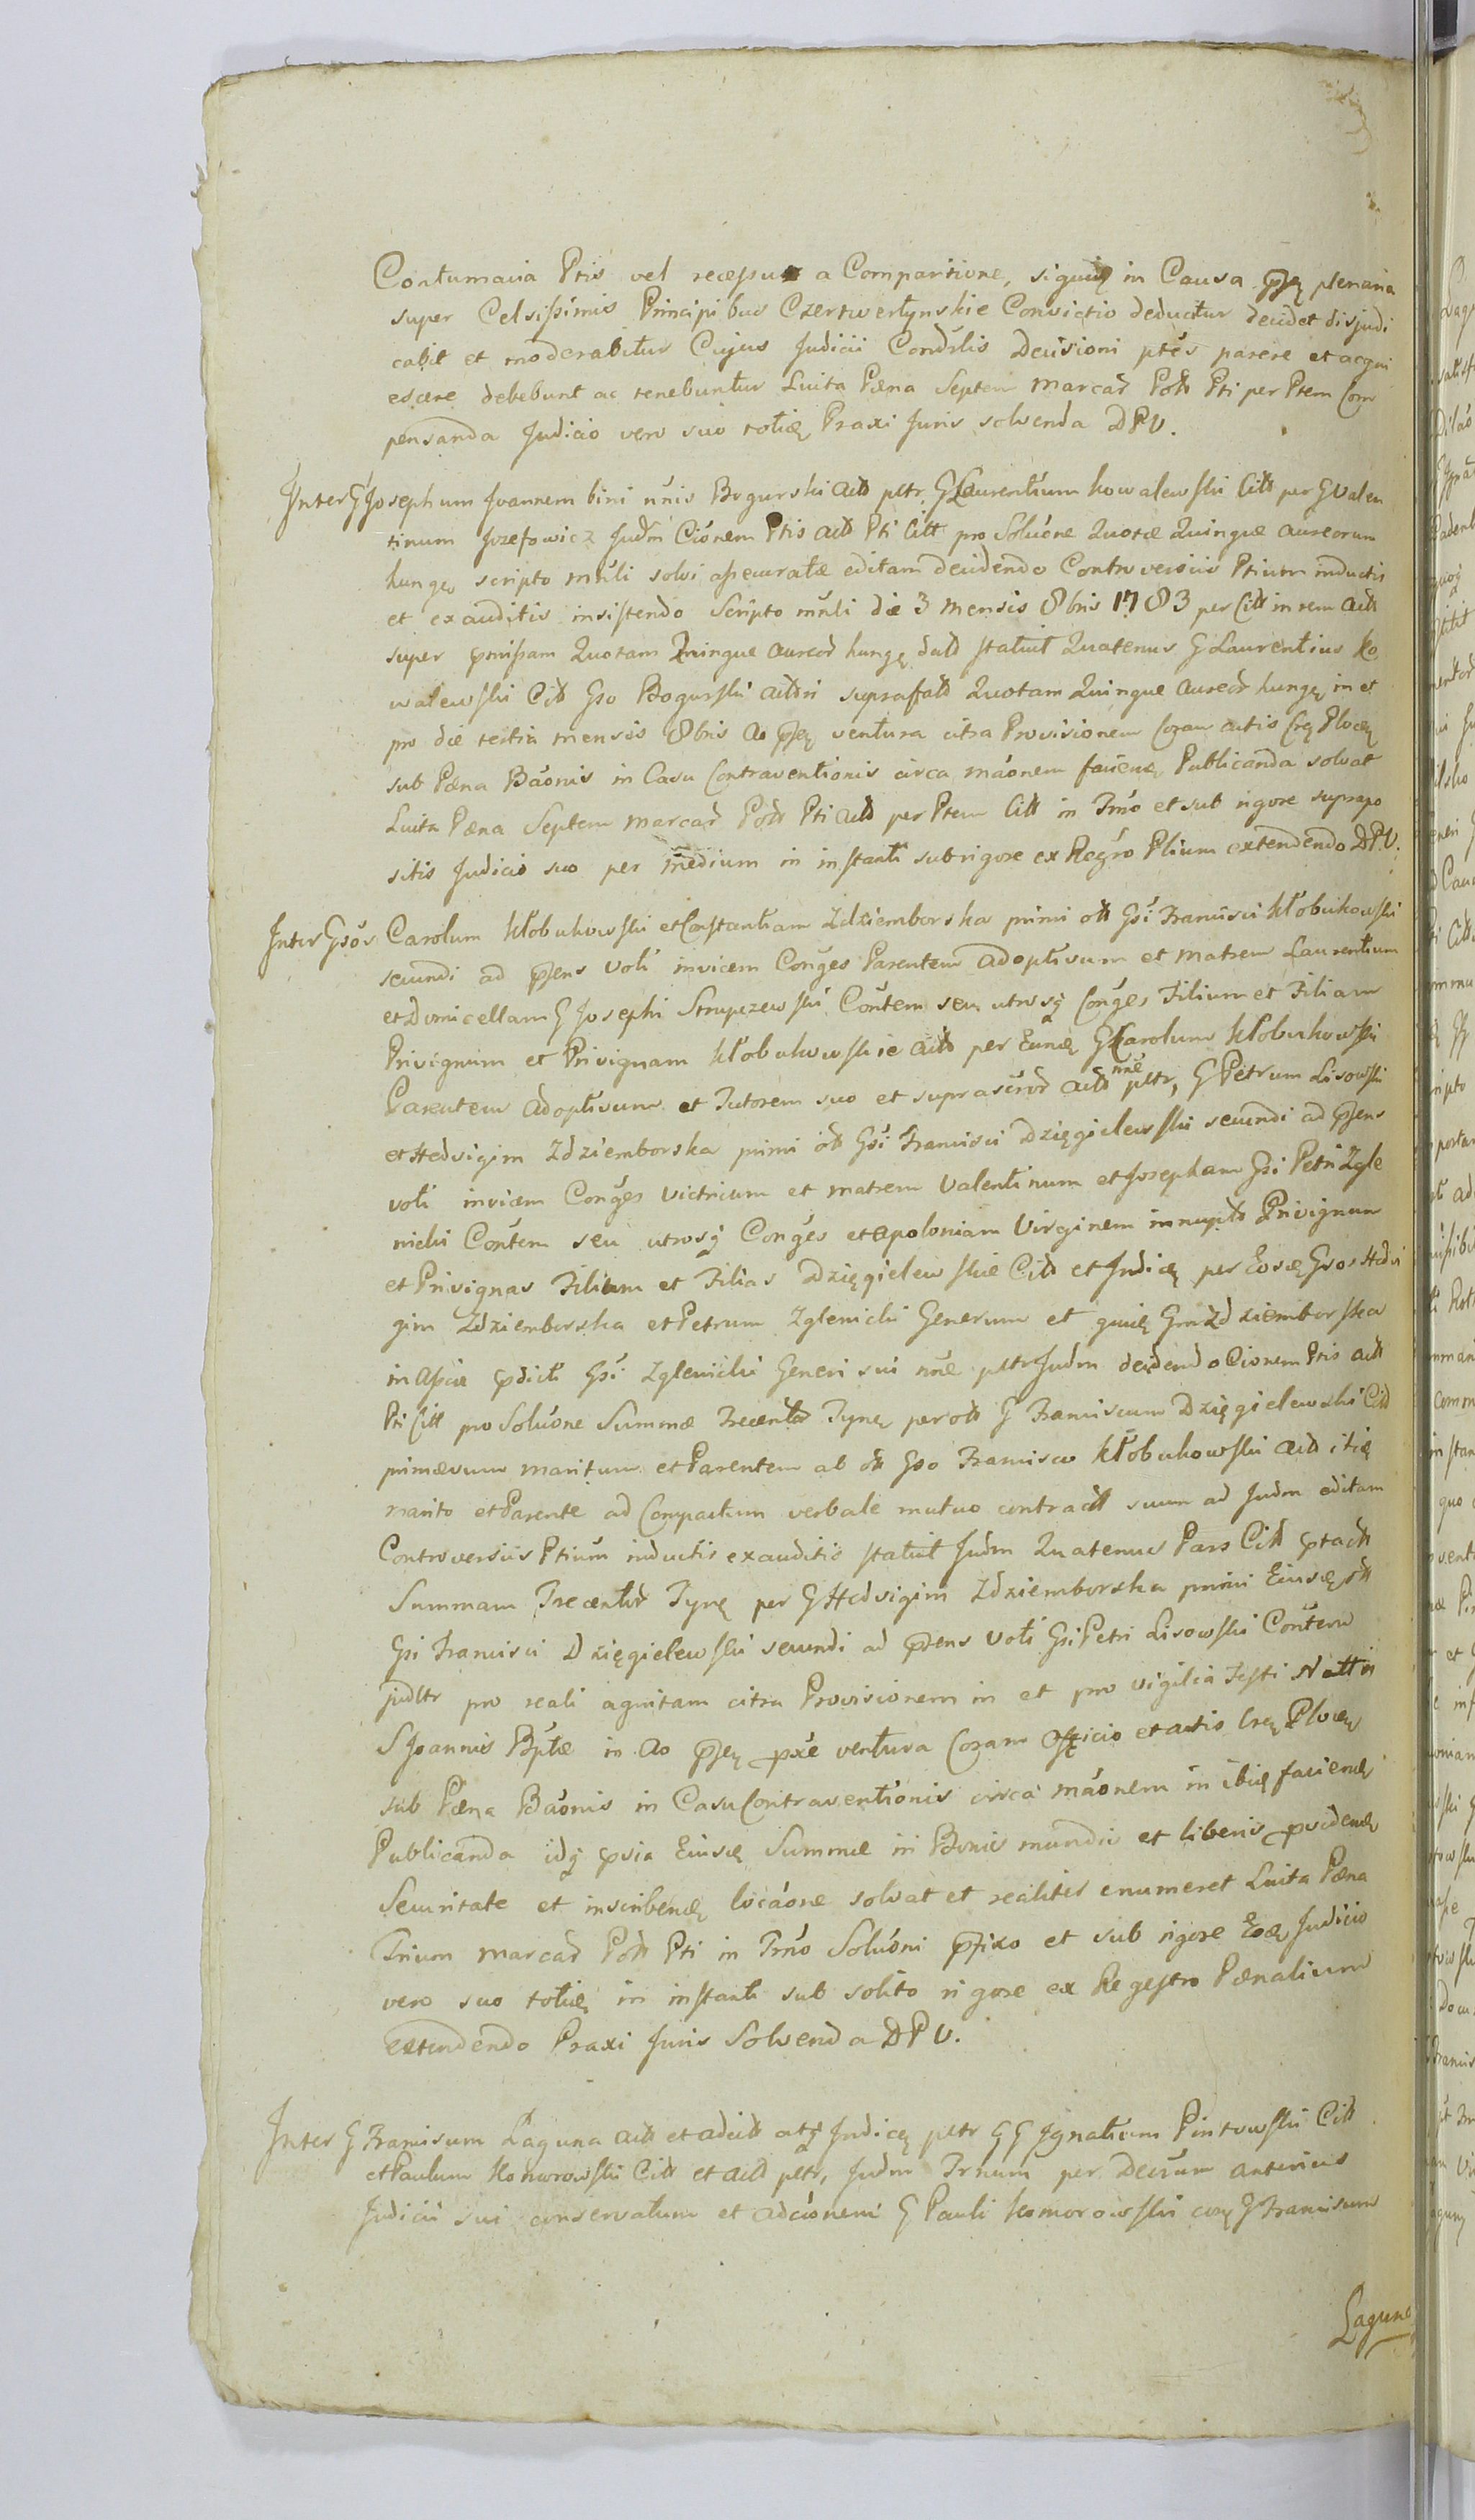 Contumacia Ptis vel recessus a Comparitione, siquid in Causa pntj plenaria
super Celsissimis Principibus Czertwertynskie Convictio deducitur decidet disjudi
cabit et moderabitur Cujus Judicii Condslis Decisioni ptes parere et acqui
escere debebunt ac tenebuntur Luita Pæna Septem Marcar Pold Pti per Ptem Com
pensanda Judicio vero suo toties Praxi Juris solvenda DPV.
Inter G Josephum Joannem bini nnis Bogurski Actt pltr G Laurentium Kowalewski Citt per G Valen
tinum Jozefowicz Judm Cionem Ptis Actt Pti Citt pro Soluone Quotæ Quinque aureorum
hung scripto mnli solvi assecuratæ editam decidendo Controversiis Ptium inductis
et exauditis insistendo Scripto mnli die 3 mensis 8bris 1783 per Citt in rem Actt
super pmissam Quotam Quinque Aureor hung dato statuit Quatenus G Laurentius Ko
walewski Citt Gso Bogurski Actri suprafatt Quotam Quinque Aureor hung in et
pro die tertia mensis 8bris Ao pnti ventura citra Provisionem Coram Actis Crq Plocen
sub Pæna Baonis in Casu Contraventionis circa maonem faciend Publicanda solvat
Luita Pæna Septem Marcar Pold Pti Actt per Ptem Citt in Trno et sub rigore suprapo
sitis Judicio suo per medium in instanti sub rigore ex Regro Plium extendendo DPV.
Inter Gsos Carolum Kłobukowski et Constantiam Zdziemborska primi ott Gsi Francisci Kłobukowski
secundi ad pñens voti invicem Conges Parentem Adoptivum et Matrem Laurentium
et Domicellam G Josephi Strupczewski Contem seu utrosq Conges Filium et Filiam
Privignum et Privignam Kłobukowskie Actt per Eund G Carolum Kłobukowski
Parentem Adoptivum et Tutorem suo et suprascror Actt nne pltr, G Petrum Lisowski
et Hedvigim Zdziemborska primi ott Gsi Francisci Dzięgielewski secundi ad pñens
voti invicem Conges Victricum et Matrem Valentinum et Josepham Gsi Petri Zgle
nicki Contem seu utrosq Conges et Apoloniam Virginem innupto Privignum
et Privignas Filium et Filias Dzięgielewskie Citt et Indics per Eosd Gsos Hedvi
gim Zdziemborska et Petrum Zglenicki Generum et quid Gm Zdziemborska
in Assia pdicti Gsi Zglenicki Generi sui nne pltr Judm decidendo Cionem Ptis Actt
Pti Citt pro Soluone Summæ Trecentor Tynf per ott G Franciscum Dzięgielewski Citt
primævum maritum et Parentem ab ott Gso Francisco Kłobukowski Actt itid
marito et Parente ad Compactum verbale mutuo contractt suum ad Judm editam
Controversiis Ptium inductis exauditis statuit Judm Quatenus Pars Citt ptactt
Summam Trecentor Tynf per G Hedvigim Zdziemborska primi Ejusd ott
Gsi Francisci Dzięgielewski secundi ad pñens Voti Gsi Petri Lisowski Contem
judltr pro reali agnitam citra Provisionem in et pro vigilia Festi Nattis
S Joannis Bptæ in Ao pnti pxe ventura Coram Officio et Actis Crq Plocen
sub Pæna Baonis in Casu Contraventionis circa maonem in ibid faciend
Publicanda idq pvia Ejusd Summæ in Bonis mundis et liberis pvidend
Securitate et inscribend locaone solvat et realiter enumeret Luita Pæna
Trium Marcar Pold Pti in Trno Soluoni pfixo et sub rigore Eod Judicio
vero suo toties in instanti sub solito rigore ex Regestro Pænalium
extendendo Praxi Juris Solvenda DPV.
Inter G Franciscum Laguna Actt et adcitt atq Indics pltr GG Ignatium Pintowski Citt
et Paulum Komorowski Citt et Actt pltr, Judm Trnum per Decrum anterius
Judicii sui conservatum et adcionem G Pauli Komorowski cora G Franciscum
Laguna